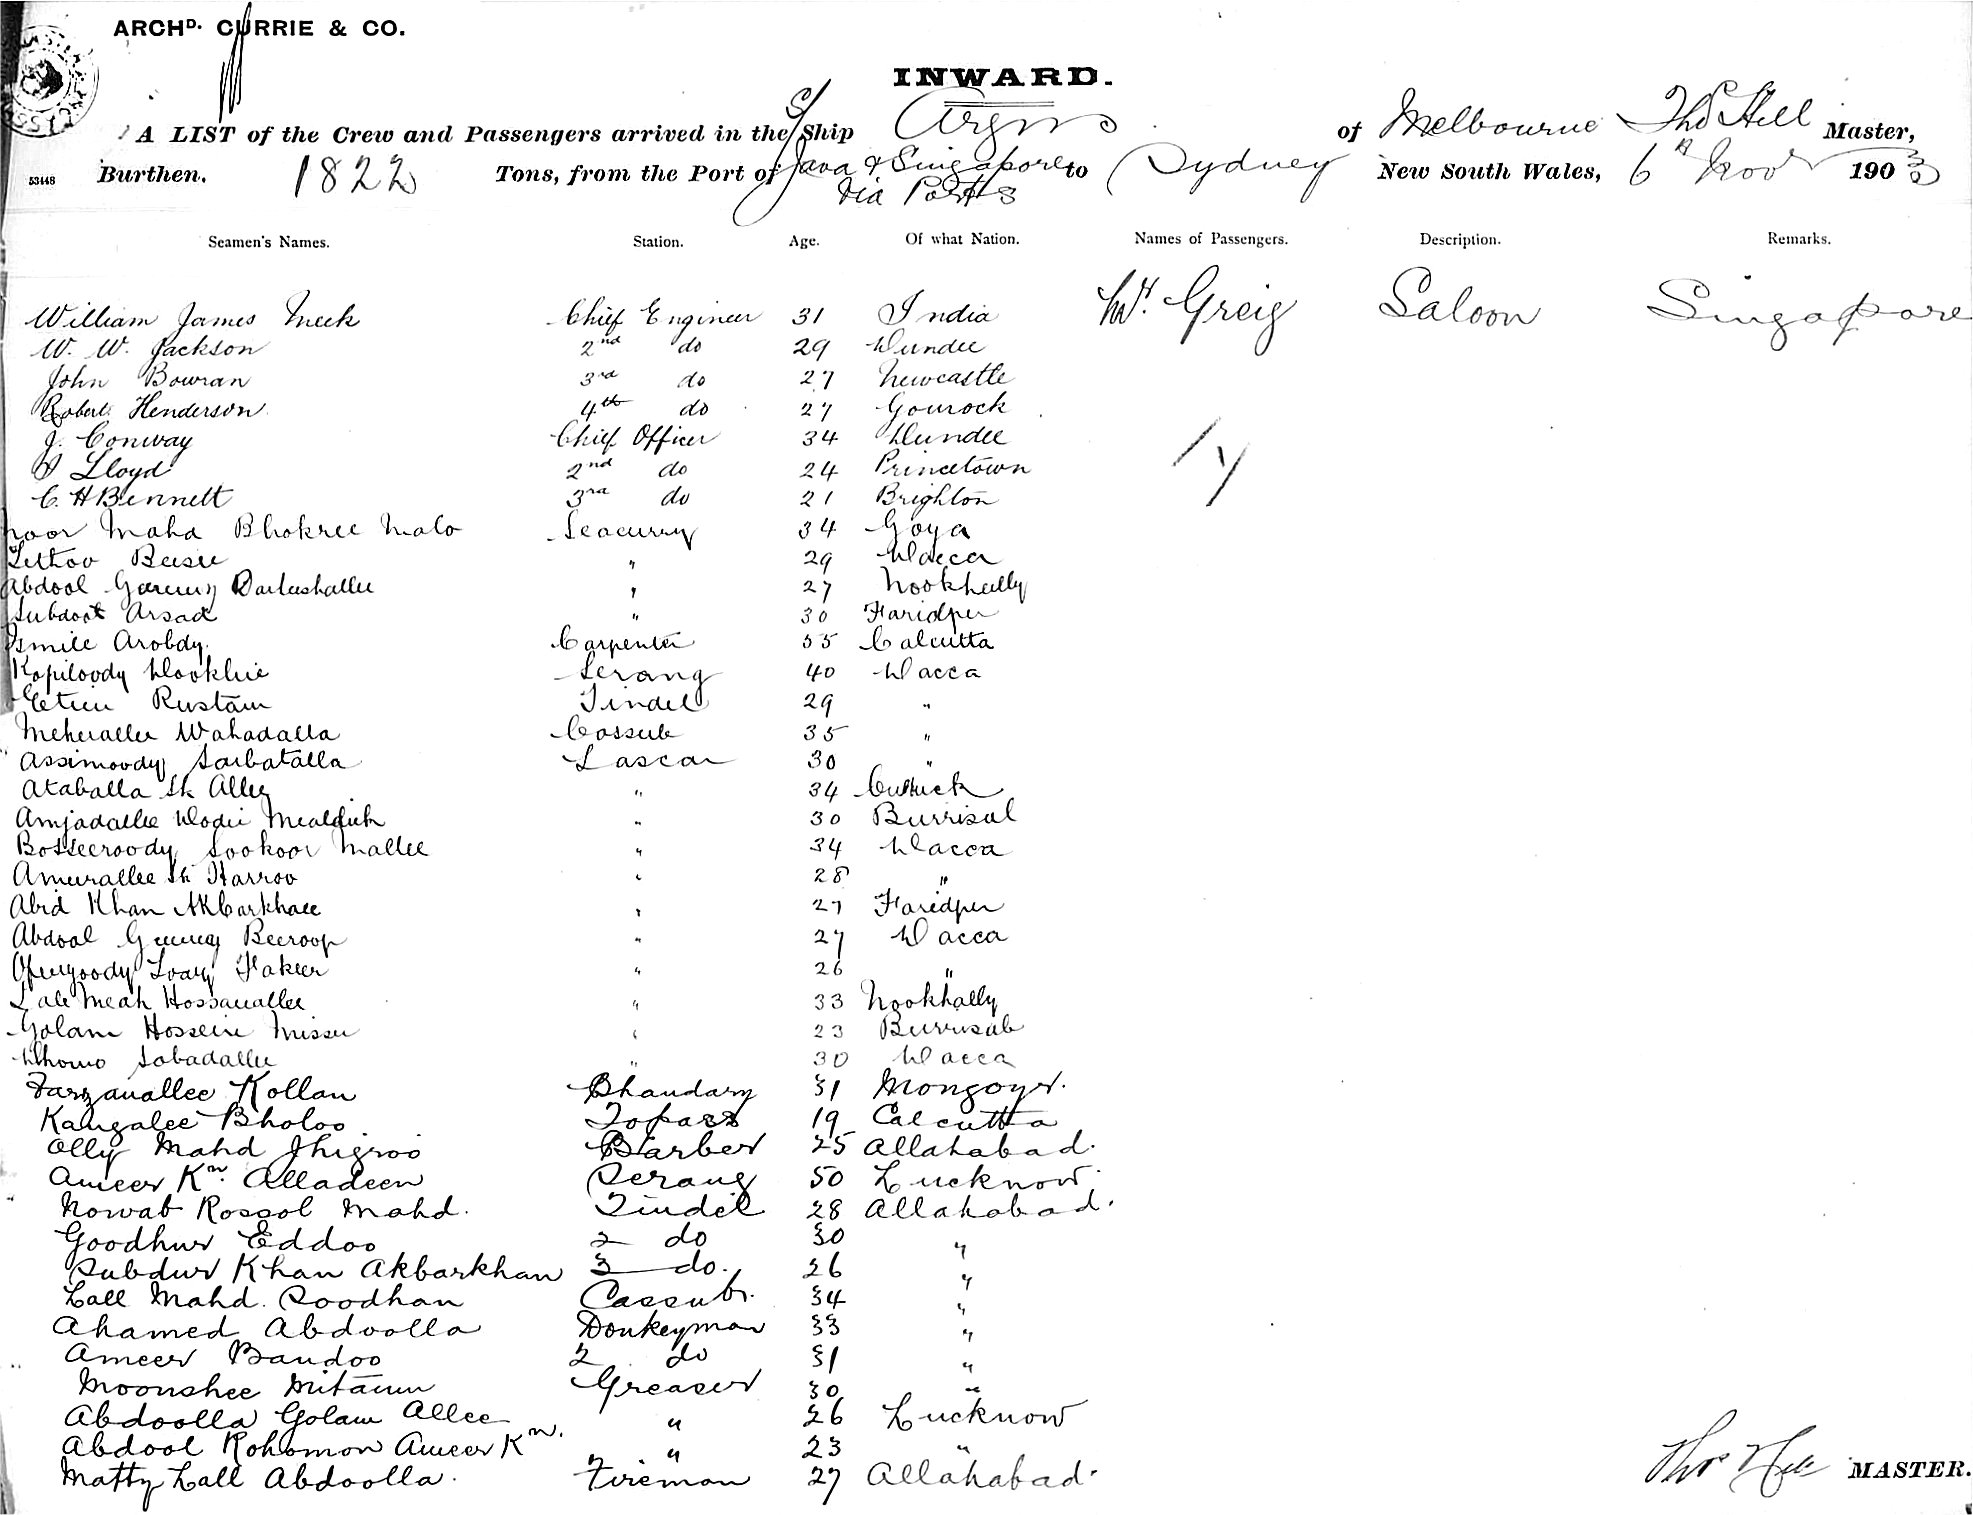 ARCHD. CURRIE & CO.
INWARD.
A LIST of the Crew and Passengers arrived in the S/Ship Argus of Melbourne Thos Hill Master,
53448 Burthen. 1822 Tons, from the Port of Java & Singapore to Sydney New South Wales, 6th Novr 1903
via Ports
Seamen's Names. Station. Age. Of what Nation. Names of Passengers. Description. Remarks.
William James Meek Chief Engineer 31 India Mr. Greig Saloon Singapore
W. W. Jackson 2nd do 29 Dundee
John Bowran 3rd do 27 Newcastle
Robert Henderson 4th do 27 Gourock
J. Conway Chief Officer 34 Dundee
Lloyd 2nd do 24 Princetown
C. H Bennett 3rd do 21 Brighton
Noor Mahd Bhokree Malo Seacunny 34 Goya
Beisu " 29 Dacca
Abdool " 27 Nookhally
Subdoot Arsad " 30 Faridper
Ismile Arobdy. Carpenter 55 Calcutta
Kopiloody Dookhie Serang 40 Dacca
Rustam Tindel 29 "
Meherallee Wahadalla Cossub 35 "
Assimoody Sarbatalla Lascar 30 "
Ataballa Sk Alley " 34 Cuttuck
Amjadallee " 30 Burrisal
Bosseeroody Sookoor Mallee " 34 Dacca
Ameerallee Sk Harroo " 28 "
Abid Khan Akbarkhan " 27 Faredper
Abdool Beeroop " 27 Dacca
Fakeer " 26 "
Lall Meah Hossanallee " 33 Nookhally
Golam Hossein Misser " 23 Burrisab
Dhomo Sobadallee " 30 Dacca
Farzanallee Kollan Bhandary 31 Mongoyr.
Kangalee Bholoo Topass 19 Calcutta
Olly Mahd Jhigroo Barber 25 Allahabad.
Ameer Kn. Alladeen Serang 50 Lucknow
Nowab Rossol Mahd. Tindel 28 Allahabad.
Goodhur Eddoo 2 do 30 "
Subdur Khan Akbarkhan 3 do. 26 "
Lall Mahd. Soodhan Cassub. 34 "
Ahamed Abdoolla Donkeyman 33 "
Ameer Bandoo 2 do 31 "
Moonshee Mitann Greaser 30 "
Abdoolla Golam Allee " 26 Lucknow
Abdool Rohomon Ameer Kn. " 23 "
Matty Lall Abdoolla. Fireman 27 Allahabad.
Thos Hill MASTER.